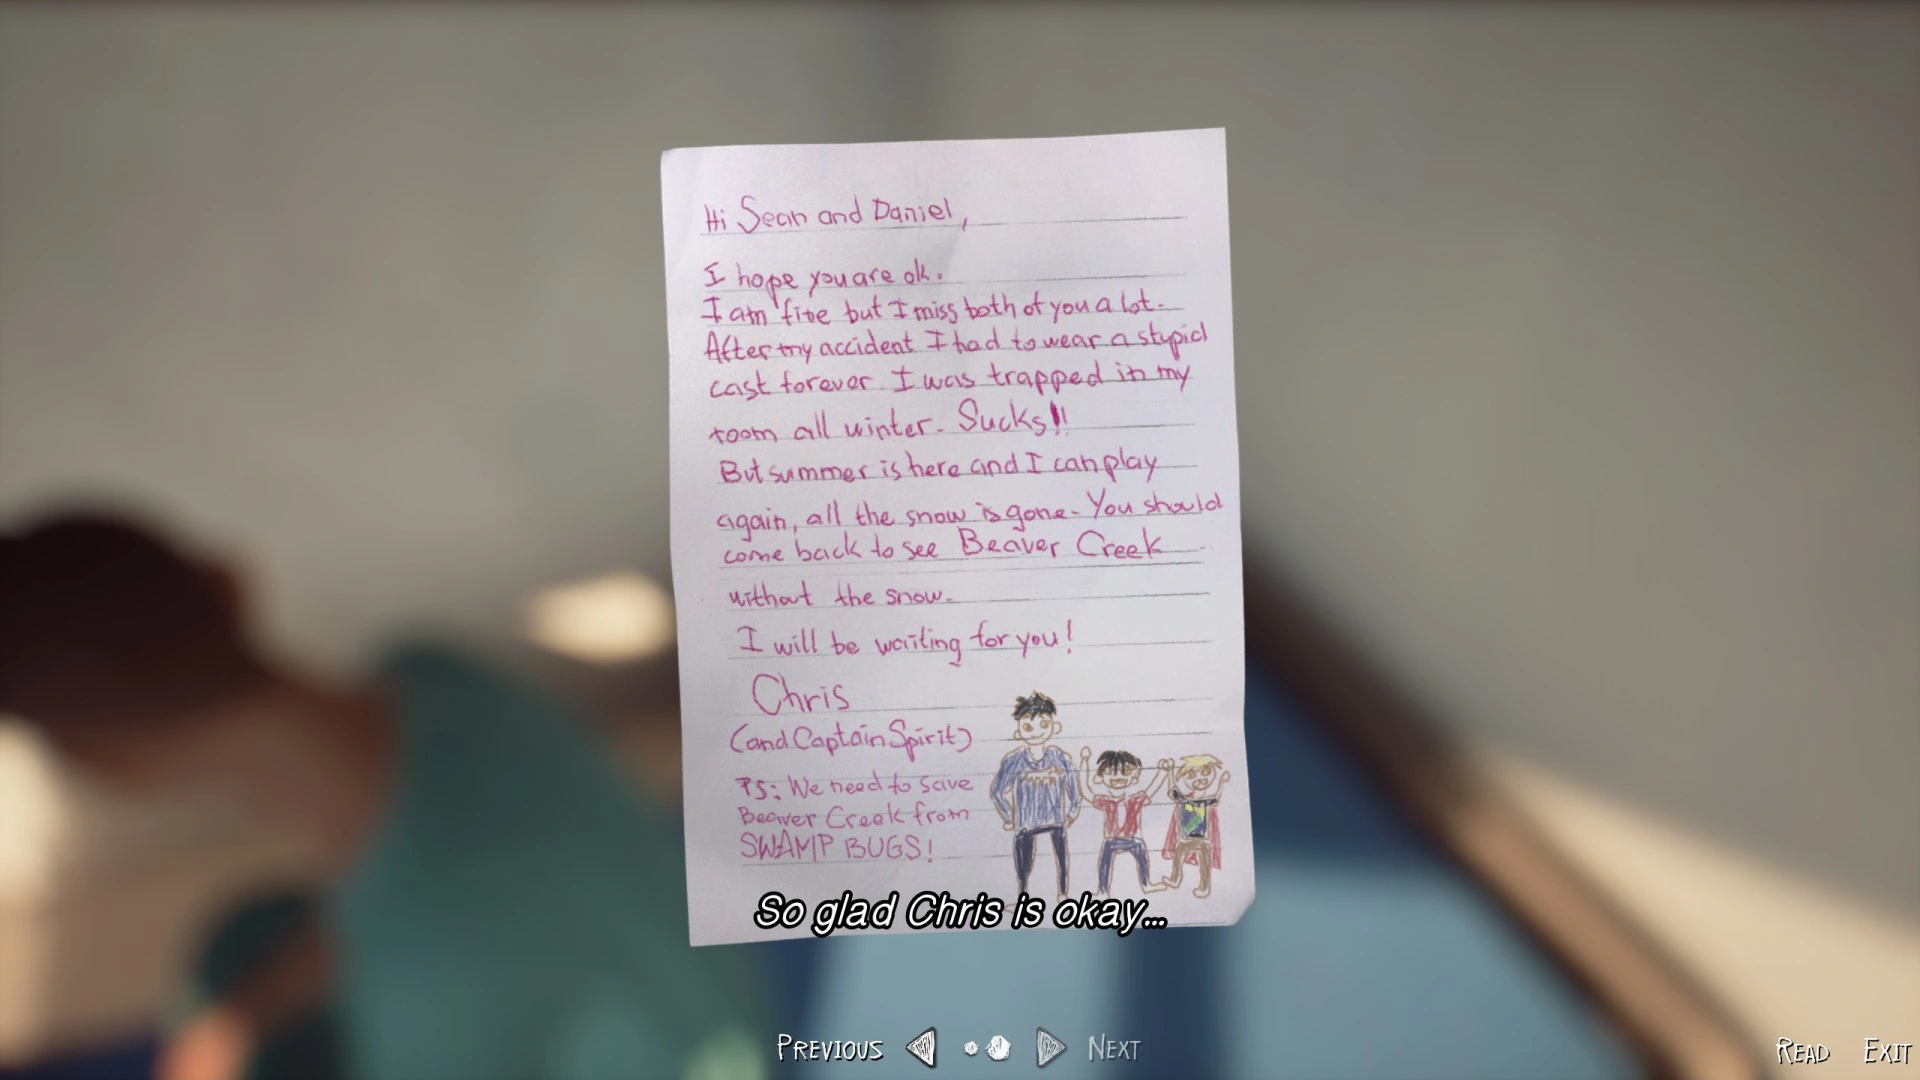 Hi Sean and Daniel,
I hope you are ok.
I am fine but I miss both of you a lot.
After my accident I had to wear a stupid
cast forever. I was trapped in my
room all winter. Sucks!!
But summer is here and I can play
again, all the snow is gone. You should
come back to see Beaver Creek
without the snow.
I will be waiting for you!
Chris
(and Captain Spirit)
PS: We need to save
Beaver Creek from
SWAMP BUGS!
So glad Chris is okay...
PREVIOUS NEXT
READ EXIT